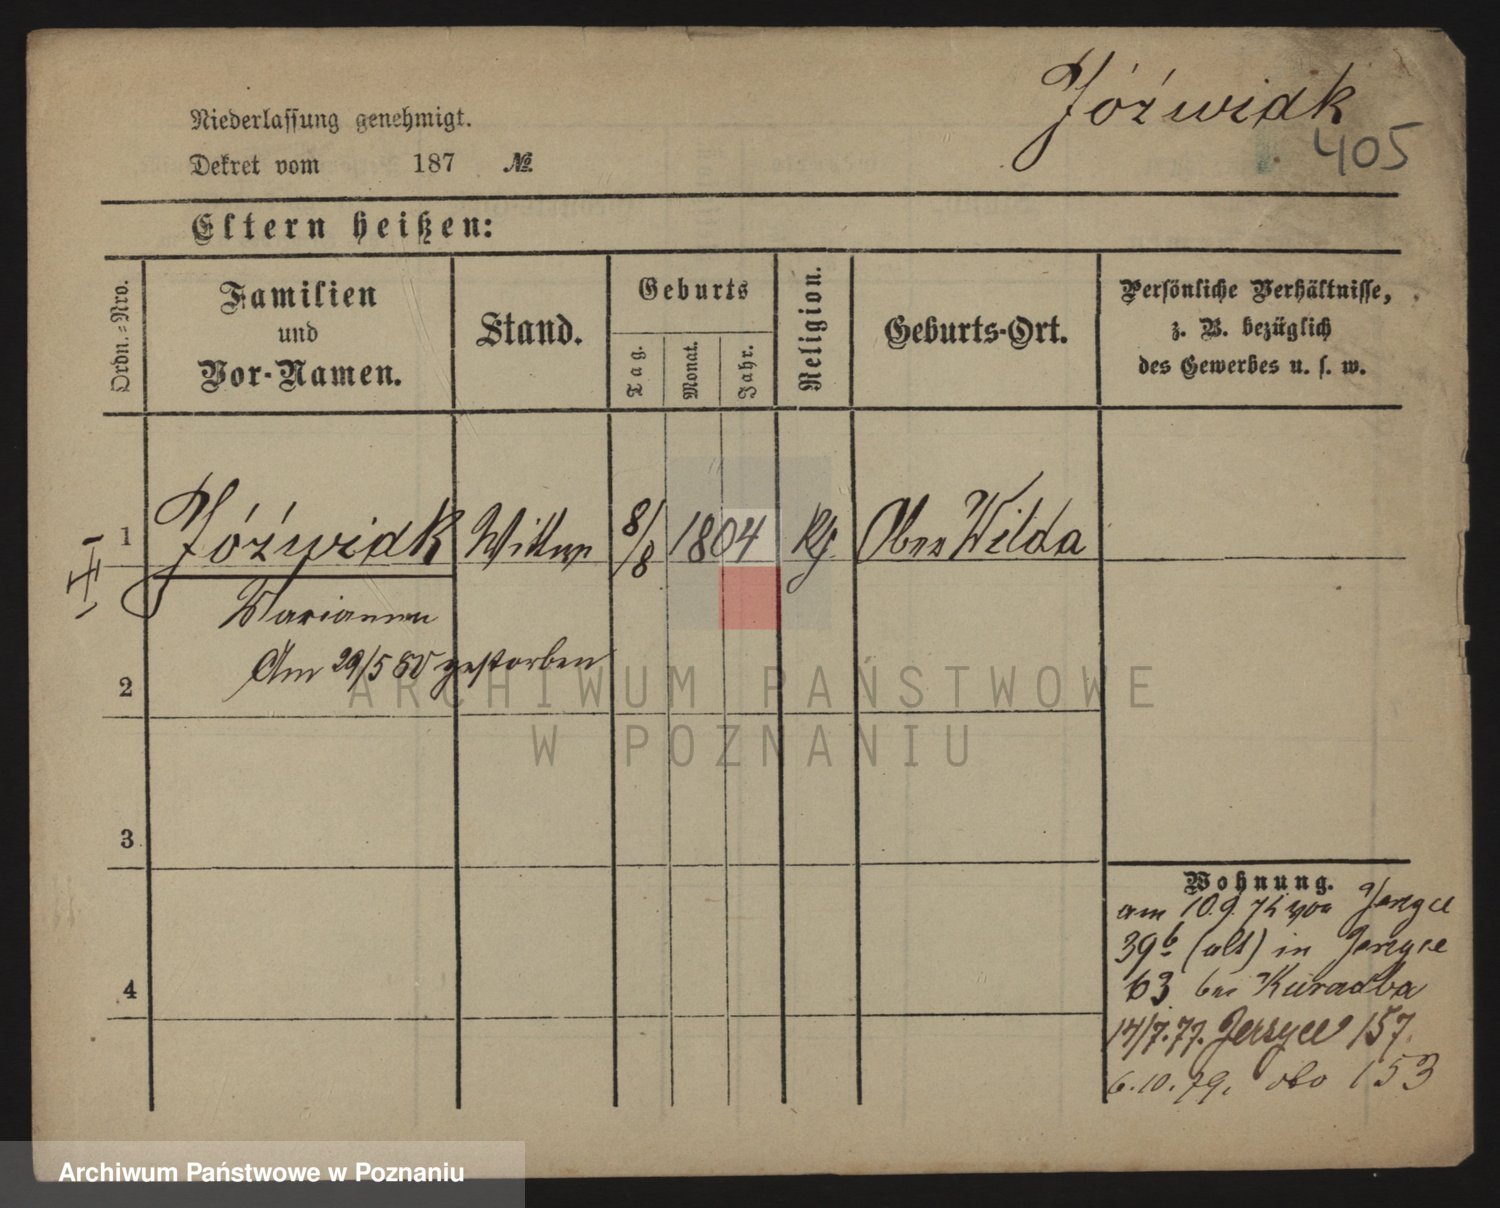 Jóźwiak
405
Niederlassung genehmigt.
Dekret vom 187 №
Eltern heißen:
Ordn.-Nro.
Familien
und
Vor-Namen.
Stand.
Geburts
Tag.
Monat.
Jahr.
Religion.
Geburts-Ort.
Persönliche Verhältnisse,
z. B. bezüglich
des Gewerbes u. s. w.
1 Jóźwiak Wittwe 8/8 1804 Ober Wilda
Marianna
Am 29/5 80 gestorben
2
3
4
Wohnung.
am 10.9. von Jerzyce
39b (alt) in Jerzyce
63 bei
14/7.77. Jerzyce 157.
6.10.79. 153
ARCHIWUM PAŃSTWOWE
W POZNANIU
Archiwum Państwowe w Poznaniu